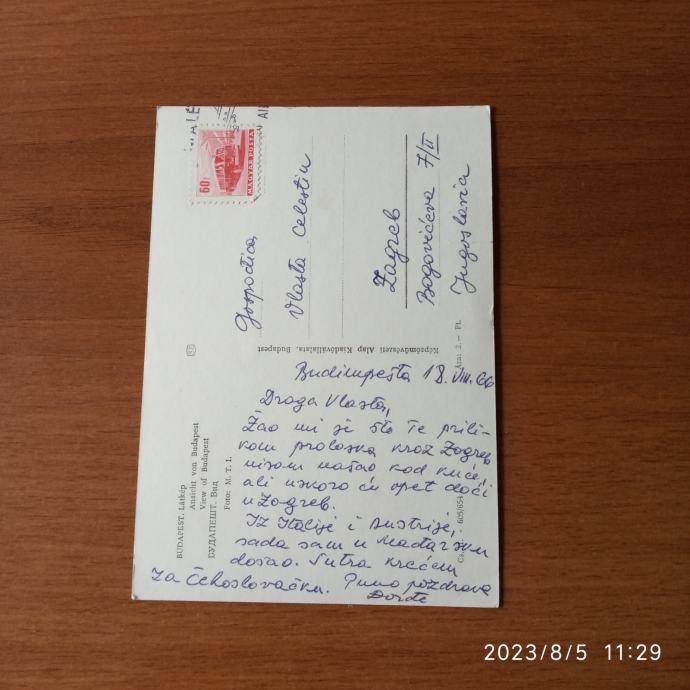 60f
MAGYAR POSTA
Gospođica
Vlasta Celestin
Zagreb
Bogovićeva 7/II
Jugoslavia
Képzőművészeti Alap Kiadóvállalata, Budapest
Ára: 2.– Ft.
BUDAPEST. Látkép
Ansicht von Budapest
View of Budapest
БУДАПЕШТ. Вид
Foto: M. T. I.
605/654
Budimpešta 18. VIII. 66
Draga Vlasta,
Žao mi je što te prili-
kom prolaska kroz Zagreb
nisam našao kod kuće,
ali uskoro ću opet doći
u Zagreb.
Iz Italije i Austrije,
sada sam u Mađarsku
došao. Sutra krećem
za Čehoslovačku. Puno pozdrava
Đorđe
2023/8/5 11:29